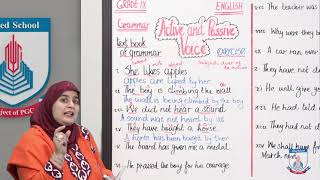 ed School
GRADE IX
ENGLISH
Grammar
Active and Passive
Voice
EXERCISE
text book
of grammar
She likes apples
Apples are liked by her
The boy is climbing the wall
The wall is being climbed by the boy
We did not hear a sound
A sound was not heard by us
They have bought a horse
A horse has been bought by them
The board has given me a medal
He praised the boy for his courage
ivet of PGC
The teacher was
Why were they b
A car ran over
They have not d
He will give yo
He had told m
They had not d
We shall have f
March nex